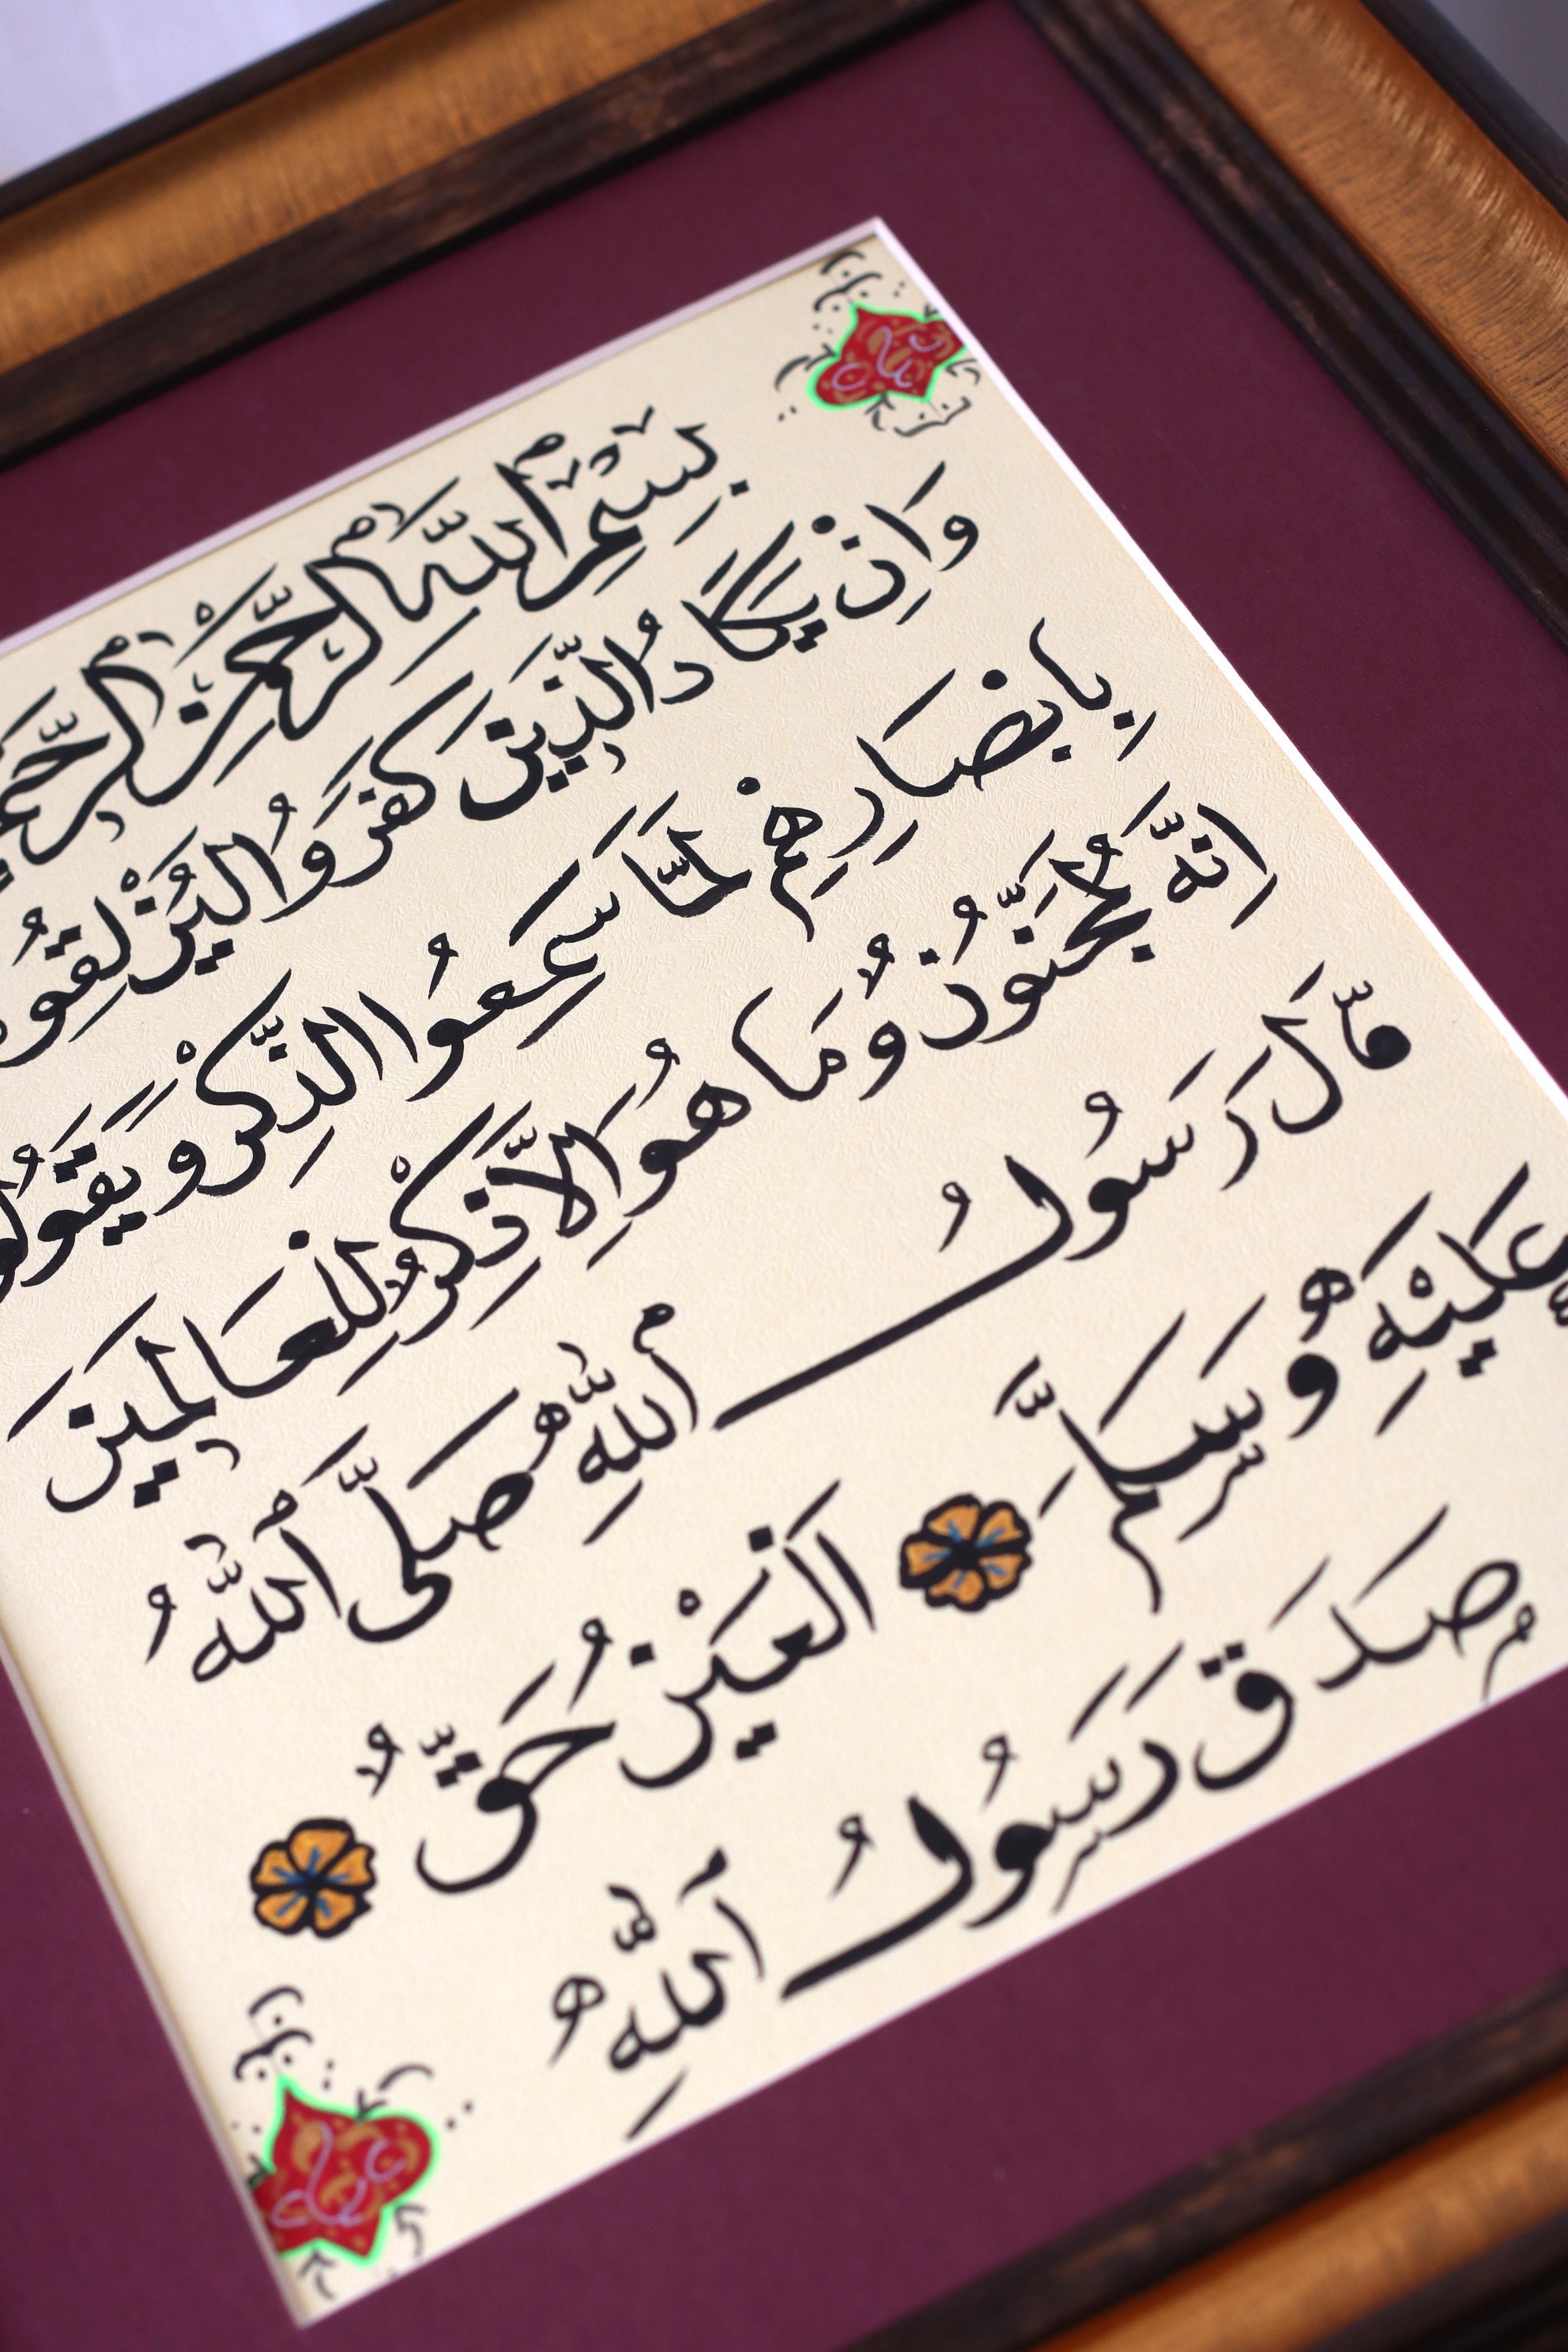 بِسْمِ اللّٰهِ الرَّحْمٰنِ الرَّحِيمِ
وَاِنْ يَكَادُ الَّذِينَ كَفَرُوا لَيُزْلِقُونَ
بِاَبْصَارِهِمْ لَمَّا سَمِعُوا الذِّكْرَ وَيَقُولُو
اِنَّهُ لَمَجْنُونٌ وَمَا هُوَ اِلَّا ذِكْرٌ لِلْعَالَمِينَ
قَالَ رَسُولُ اللّٰهِ صَلَّى اللّٰهُ
عَلَيْهِ وَسَلَّمَ الْعَيْنُ حَقٌّ
صَدَقَ رَسُولُ اللّٰهِ